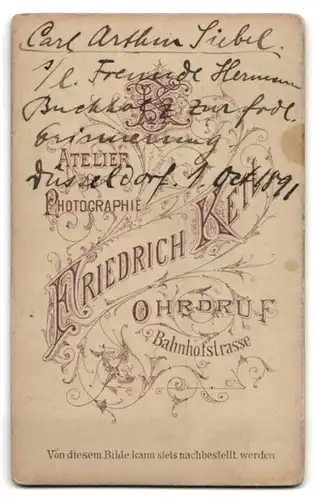 Carl Arthur Siebel.
s/l. Freunde Hermann
Buchholz zur frdl.
Erinnerung.
ATELIER
Düsseldorf. 1. Oct. 1891
PHOTOGRAPHIE
FRIEDRICH
OHRDRUF
Bahnhofstrasse
Von diesem Bilde kann stets nachbestellt werden